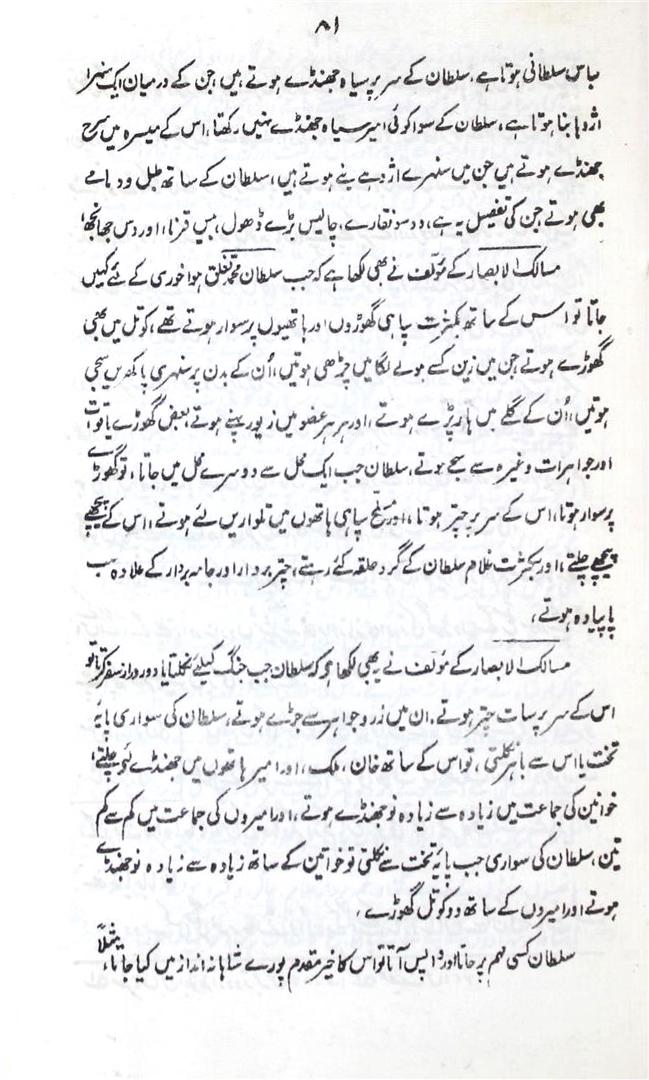 ۸۱
لباس سلطانی ہوتا ہے، سلطان کے سر پر سیاہ جھنڈے ہوتے ہیں، جن کے درمیان ایک سنہرا
اژدہا بنا ہوتا ہے، سلطان کے سوا کوئی امیر سیاہ جھنڈے نہیں رکھتا، اس کے میسرہ میں سرخ
جھنڈے ہوتے ہیں جن میں سنہرے اژدہے بنے ہوتے ہیں، سلطان کے ساتھ طبل و دمامے
بھی ہوتے جن کی تفصیل یہ ہے، دو سو نقارے، چالیس بڑے ڈھول، بیس قرنا، اور دس جھانجھ،
مسالک الابصار کے مؤلف نے بھی لکھا ہے کہ جب سلطان محمد تغلق ہوا خوری کے لئے کہیں
جاتا تو اس کے ساتھ بکثرت سپاہی گھوڑوں اور ہاتھیوں پر سوار ہوتے تھے، کوتل میں بھی
گھوڑے ہوتے جن میں زین کسے ہوئے لگامیں چڑھی ہوتیں، اُن کے بدن پر سنہری پاکھریں سجی
ہوتیں، اُن کے گلے میں ہار پڑے ہوتے، اور ہر ہر عضو میں زیور پہنے ہوتے، بعض گھوڑے یاقوت
اور جواہرات وغیرہ سے سجے ہوتے، سلطان جب ایک محل سے دوسرے محل میں جاتا، تو گھوڑے
پر سوار ہوتا، اس کے سر پر چتر ہوتا، اور مسلح سپاہی ہاتھوں میں تلواریں لئے ہوتے، اس کے پیچھے
پیچھے چلتے، اور بکثرت غلام سلطان کے گرد حلقہ کئے رہتے، چتر بردار اور جامہ بردار کے علاوہ سب
پا پیادہ ہوتے،
مسالک الابصار کے مؤلف نے یہ بھی لکھا ہے کہ سلطان جب جنگ کیلئے نکلتا یا دور دراز سفر کرتا تو
اس کے سر پر سات چتر ہوتے۔ ان میں زر و جواہر سے جڑے ہوتے، سلطان کی سواری پایۂ
تخت یا اس سے باہر نکلتی، تو اس کے ساتھ خان، ملک، اور امیر ہاتھوں میں جھنڈے لئے چلتے،
خوانین کی جماعت میں زیادہ سے زیادہ نو جھنڈے ہوتے، اور امیروں کی جماعت میں کم سے کم
تین، سلطان کی سواری جب پایۂ تخت سے نکلتی تو خوانین کے ساتھ زیادہ سے زیادہ نو جھنڈے
ہوتے اور امیروں کے ساتھ دو کوتل گھوڑے،
سلطان کسی مہم پر جاتا اور واپس آتا تو اس کا خیر مقدم پورے شاہانہ انداز میں کیا جاتا، مثلاً